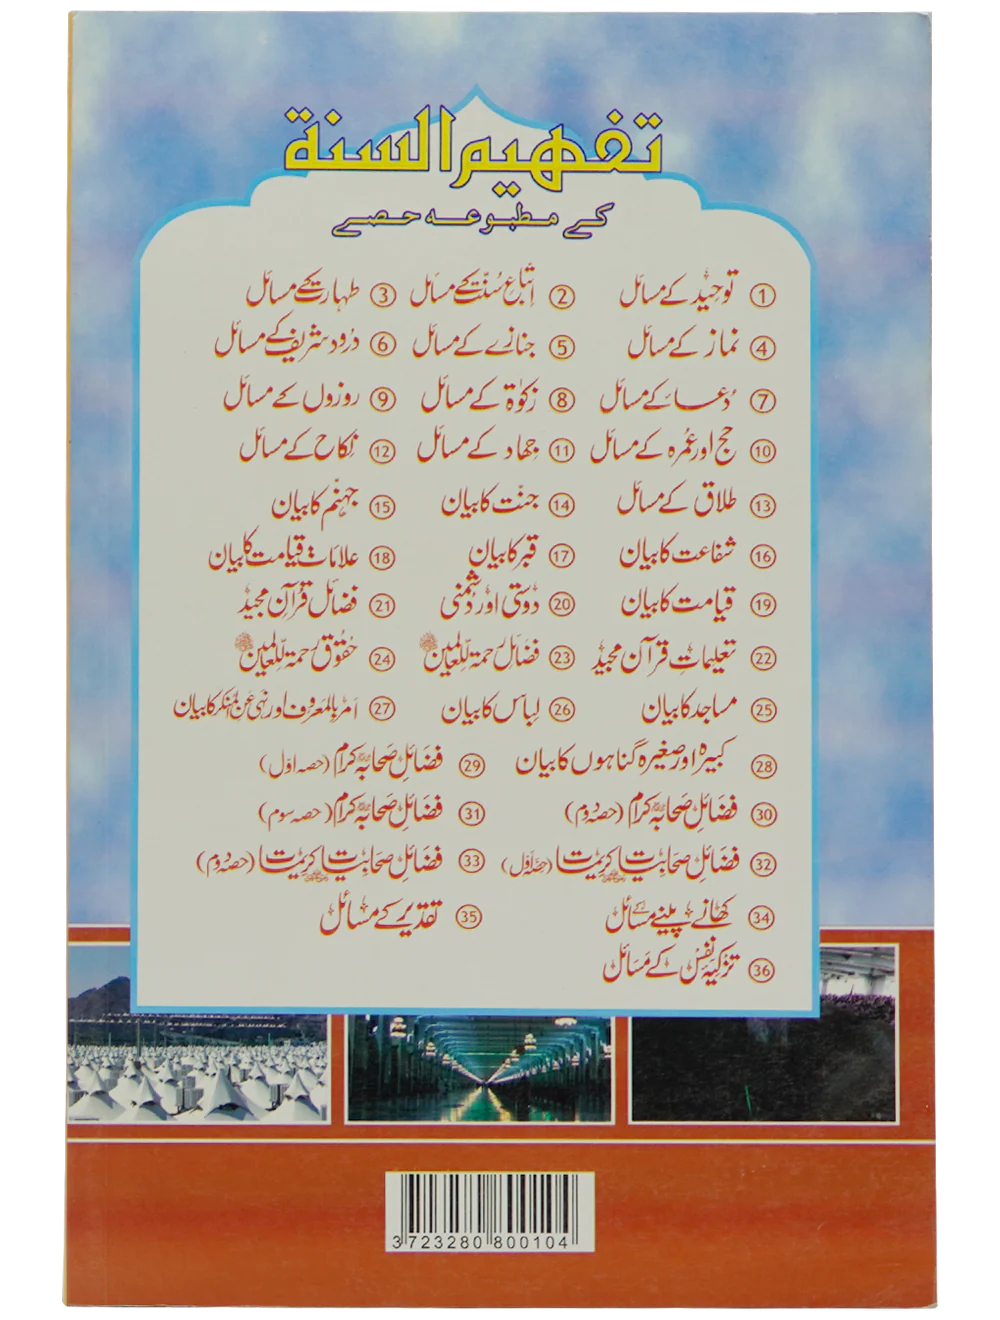 تفہیم السنة
کے مطبوعہ حصے
① توحید کے مسائل ② اتباعِ سنت کے مسائل ③ طہارت کے مسائل
④ نماز کے مسائل ⑤ جنازے کے مسائل ⑥ درود شریف کے مسائل
⑦ دعا کے مسائل ⑧ زکوٰة کے مسائل ⑨ روزوں کے مسائل
⑩ حج اور عمرہ کے مسائل ⑪ جہاد کے مسائل ⑫ نکاح کے مسائل
⑬ طلاق کے مسائل ⑭ جنت کا بیان ⑮ جہنم کا بیان
⑯ شفاعت کا بیان ⑰ قبر کا بیان ⑱ علاماتِ قیامت کا بیان
⑲ قیامت کا بیان ⑳ دوستی اور دشمنی ㉑ فضائل قرآن مجید
㉒ تعلیماتِ قرآن مجید ㉓ فضائل رحمۃ للعالمین ㉔ حقوق رحمۃ للعالمین
㉕ مساجد کا بیان ㉖ لباس کا بیان ㉗ امر بالمعروف اور نہی عن المنکر کا بیان
㉘ کبیرہ اور صغیرہ گناہوں کا بیان ㉙ فضائلِ صحابہ کرام (حصہ اول)
㉚ فضائلِ صحابہ کرام (حصہ دوم) ㉛ فضائلِ صحابہ کرام (حصہ سوم)
㉜ فضائلِ صحابیات کریمات (حصہ اول) ㉝ فضائلِ صحابیات کریمات (حصہ دوم)
㉞ کھانے پینے کے مسائل ㉟ تقدیر کے مسائل
㊱ تزکیہ نفس کے مسائل
3723280800104